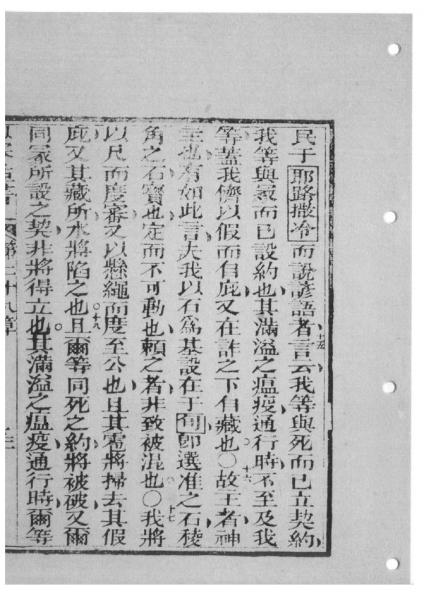 民于耶路撒冷而說諺語者言云我等與死而已立契約
十五
我等與冥而已設約也其滿溢之瘟疫通行時不至及我
等蓋我儕以假而自庇又在詐之下自藏也〇故王者神
十六
主也有如此言夫我以石爲基設在于旬卽選准之石稜
角之石寶也定而不可動也賴之者非致被混也〇我將
十七
以尺而度審又以懸繩而度至公也且其雹將掃去其假
庇又其藏所水將陷之也且爾等同死之約將被破又爾
十八
同冥所設之契非將得立也其滿溢之瘟疫通行時爾等
書 第二十八章